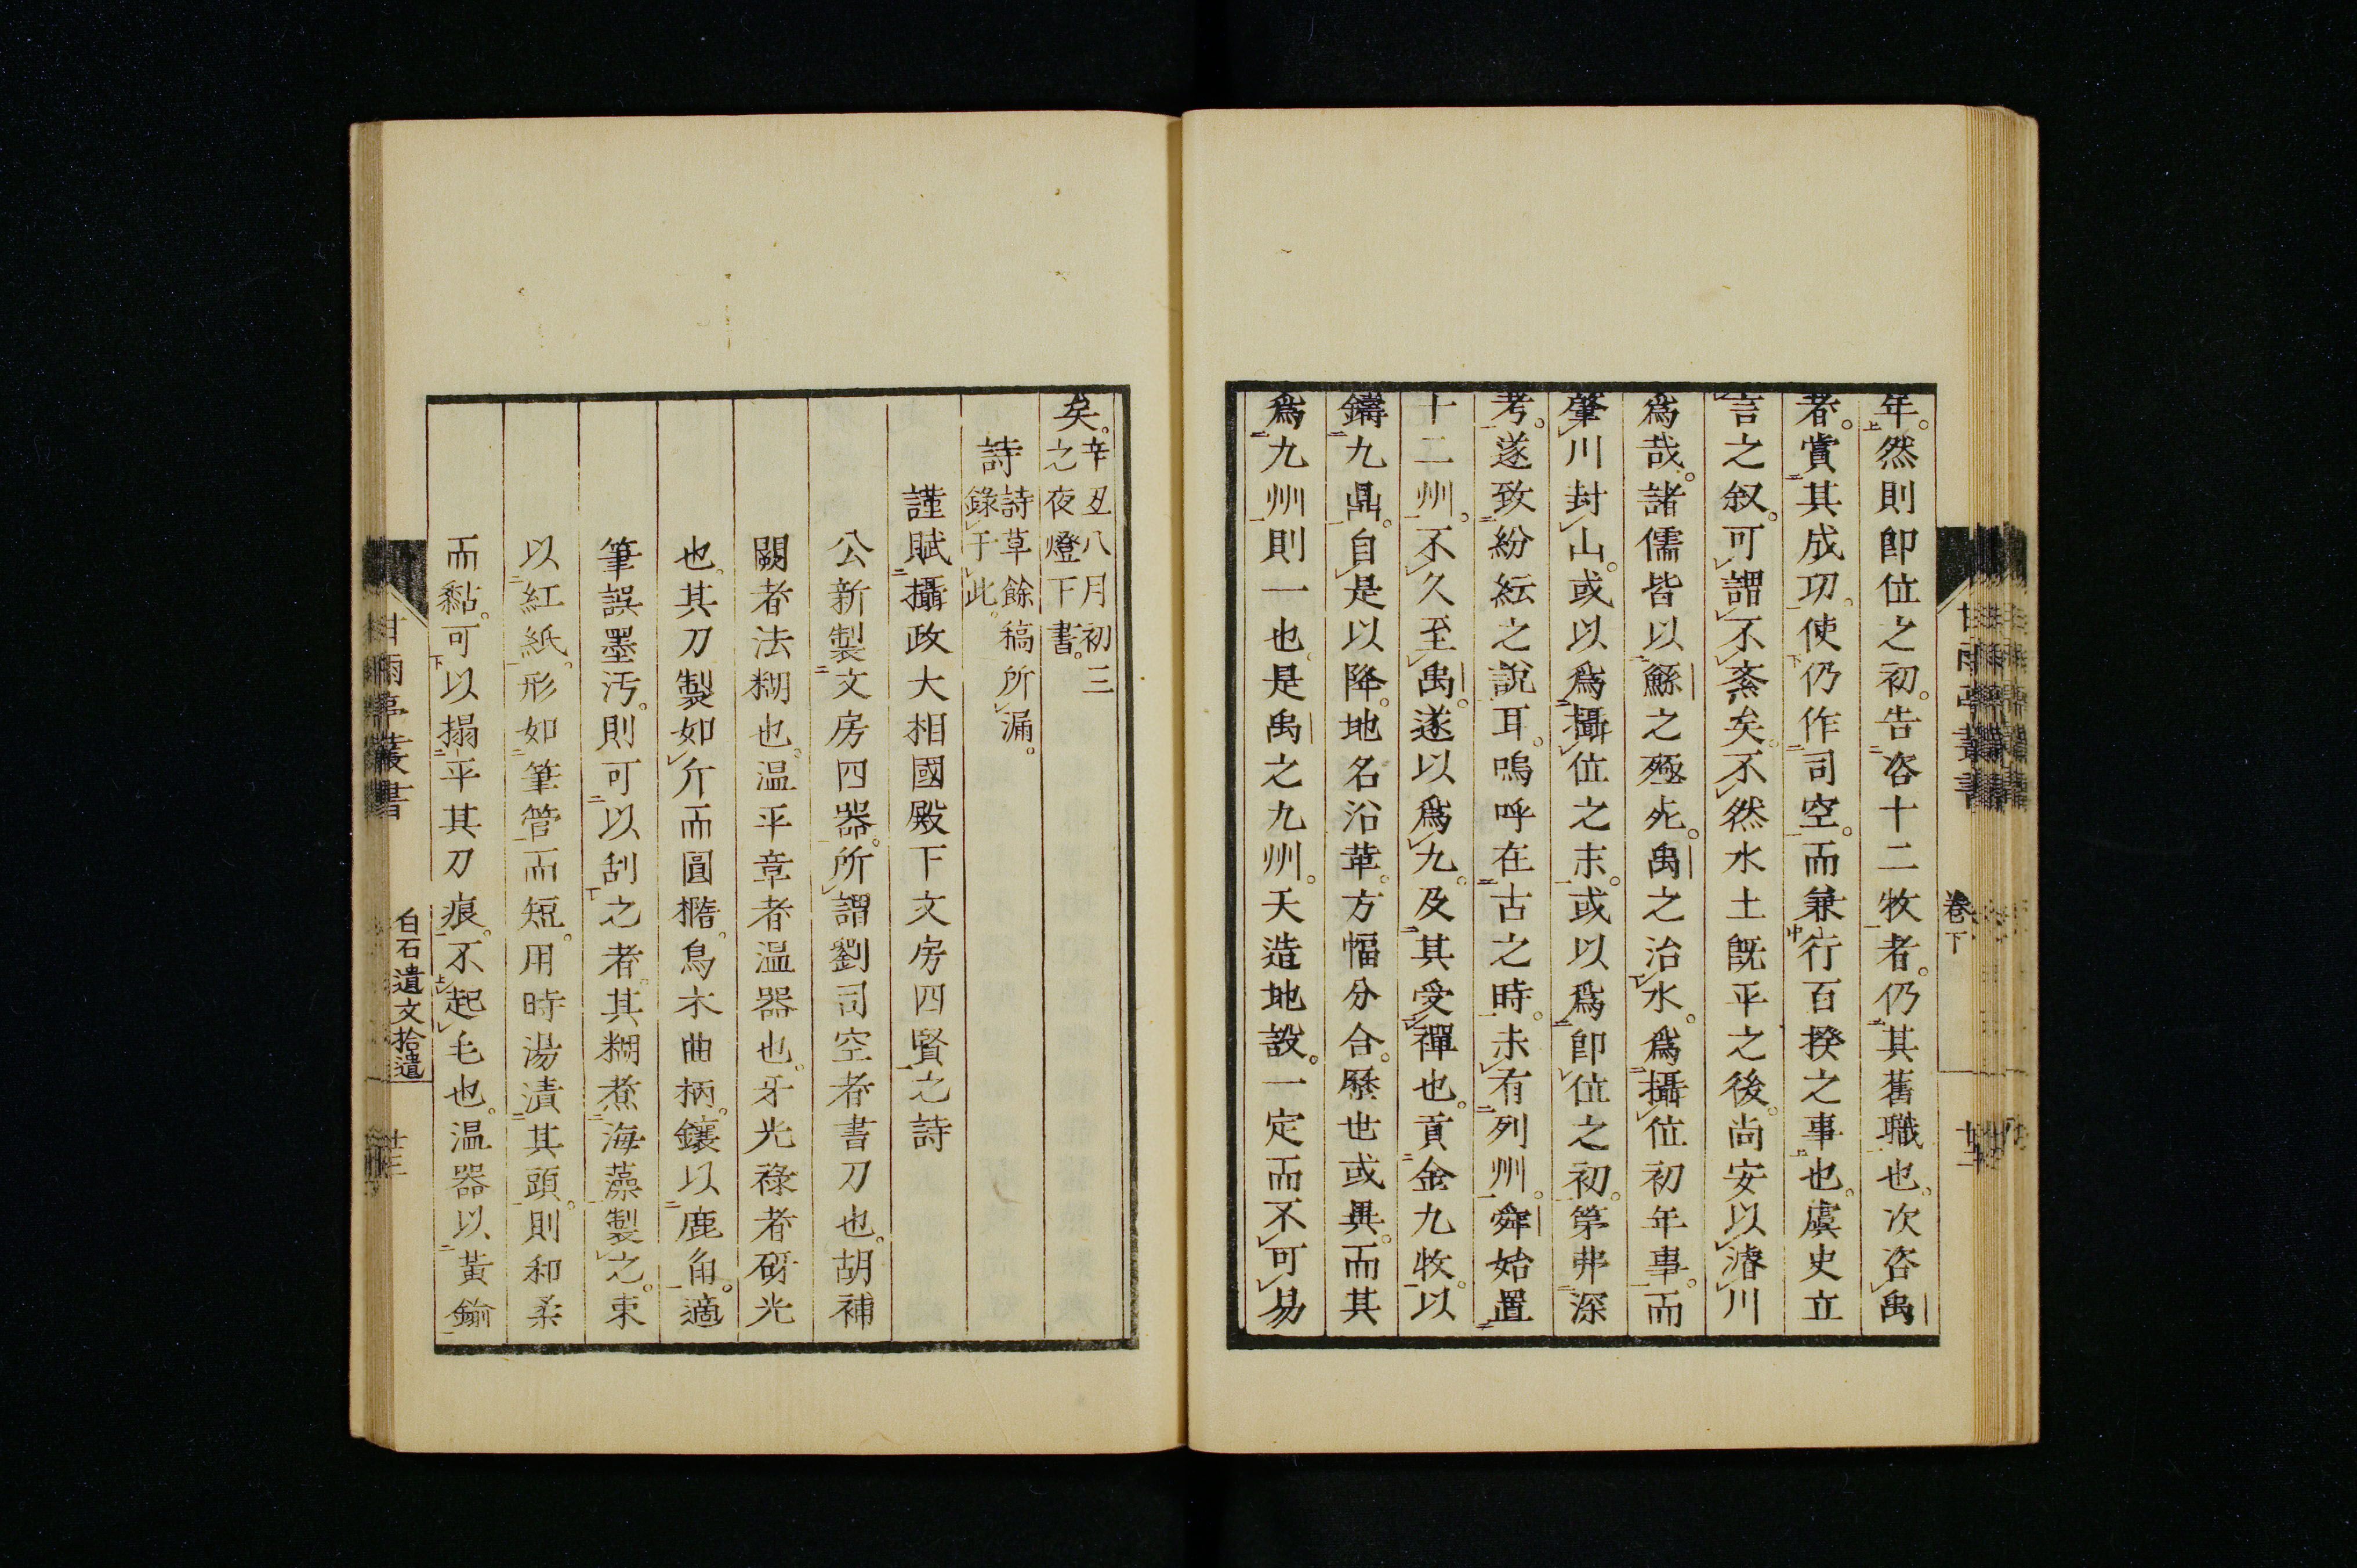 年。然則卽位之初。告咨十二牧者。仍其舊職也。次咨禹
者。賞其成功。使仍作司空。而兼行百揆之事也。虞史立
言之叙。可謂不紊矣。不然水土旣平之後。尚安以濬川
爲哉。諸儒皆以鯀之殛死。禹之治水。爲攝位初年事。而
肇川封山。或以爲攝位之末。或以爲卽位之初。第弗深
考。遂致紛紜之說耳。嗚呼在古之時。未有列州。舜始置
十二州。不久至禹。遂以爲九。及其受禪也。貢金九牧。以
鑄九鼎。自是以降。地名沿革。方幅分合。歷世或異。而其
爲九州則一也。是禹之九州。天造地設。一定而不可易
卷下
甘雨亭叢書
矣。辛丑八月初三
之夜燈下書。
詩 詩草餘稿所漏。
錄于此。
謹賦攝政大相國殿下文房四賢之詩
公新製文房四器。所謂劉司空者書刀也。胡補
闕者法糊也。温平章者温器也。牙光祿者砑光
也。其刀製如斤而圓橢。烏木曲柄。鑲以鹿角。適
筆誤墨汚。則可以刮之者。其糊煮海藻製之。束
以紅紙。形如筆管而短。用時湯漬其頭。則和柔
而黏。可以搨平其刀痕。不起毛也。温器以黃鍮
甘雨亭叢書
白石遺文拾遺